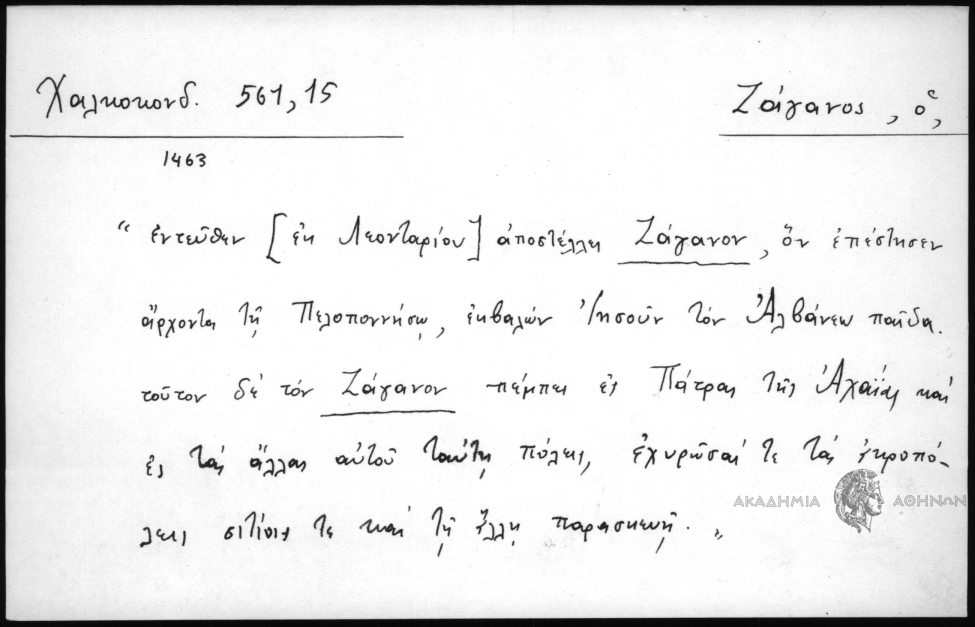 Χαλκοκονδ. 561,15
Ζάγανος, ὁ,
1463
“ ἐντεῦθεν [ἐκ Λεονταρίου] ἀποστέλλει Ζάγανον, ὅν ἐπέστησεν
ἄρχοντα τῇ Πελοποννήσῳ, ἐκβαλών Ἰησοῦν τόν Ἀλβάνεω παῖδα.
τοῦτον δέ τόν Ζάγανον πέμπει ἐς Πάτρας τῆς Ἀχαΐας καί
ἐς τάς ἄλλας αὐτοῦ ταύτῃ πόλεις, ἐχυρῶσαί τε τάς ἀκροπό-
λεις σιτίοις τε καί τῇ ἄλλῃ παρασκευῇ. „
ΑΚΑΔΗΜΙΑ ΑΘΗΝΩΝ